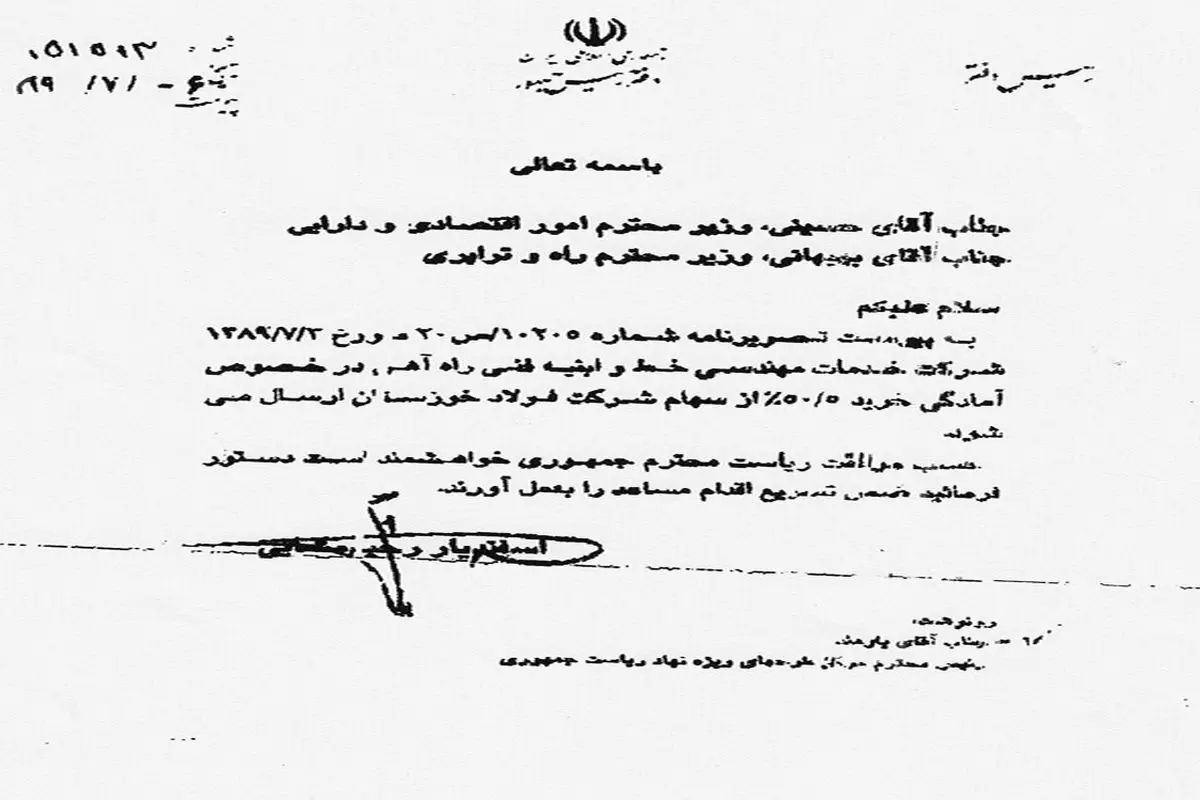 جمهوری اسلامی ایران
دفتر رئیس جمهور
رئیس دفتر
۸۹/۷/۶
باسمه تعالی
جناب آقای حسینی، وزیر محترم امور اقتصادی و دارایی
جناب آقای بهبهانی، وزیر محترم راه و ترابری
سلام علیکم
به پیوست تصویرنامه شماره ۱۰۲۰۵/ص۲۰ مورخ ۱۳۸۹/۷/۳
شرکت خدمات مهندسی خط و ابنیه فنی راه آهن در خصوص
آمادگی خرید ۵۰/۵٪ از سهام شرکت فولاد خوزستان ارسال می
شود
حسب موافقت ریاست محترم جمهوری خواهشمند است دستور
فرمائید ضمن تسریع اقدام مساعد را بعمل آورند.
اسفندیار رحیم مشایی
رونوشت:
جناب آقای
محترم مرکز طرحهای ویژه نهاد ریاست جمهوری